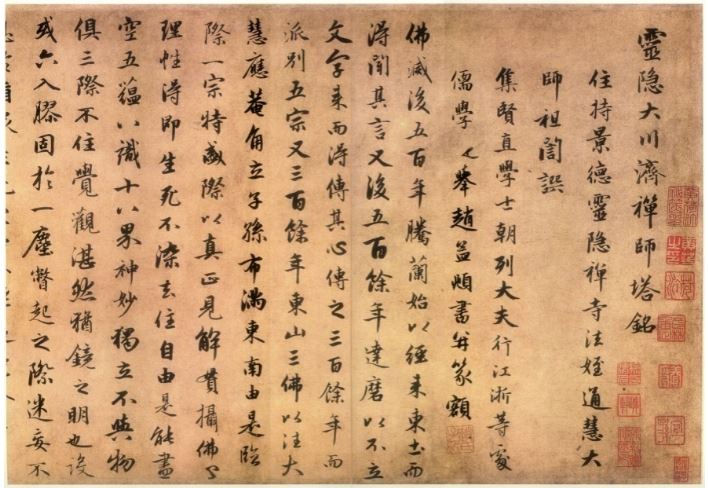 靈隐大川濟禪師塔銘
住持景德靈隐禪寺法姪通慧大
師祖誾譔
集賢直學士朝列大夫行江浙等處
儒學提舉趙孟頫書并篆額
佛滅後五百年騰蘭始以經来東土而
得聞其言又後五百餘年達磨以不立
文字来而得傳其心傳之三百餘年而
派别五宗又三百餘年東山三佛以法大
慧應菴角立子孫布滿東南由是臨
際一宗特盛際以真正見解貫攝佛之
理性得即生死不染去住自由是能盡
空五蕴八識十八界神妙獨立不與物
俱三際不住覺觀湛然猶鏡之明也設
或六入膠固於一塵瞥起之際迷妄不